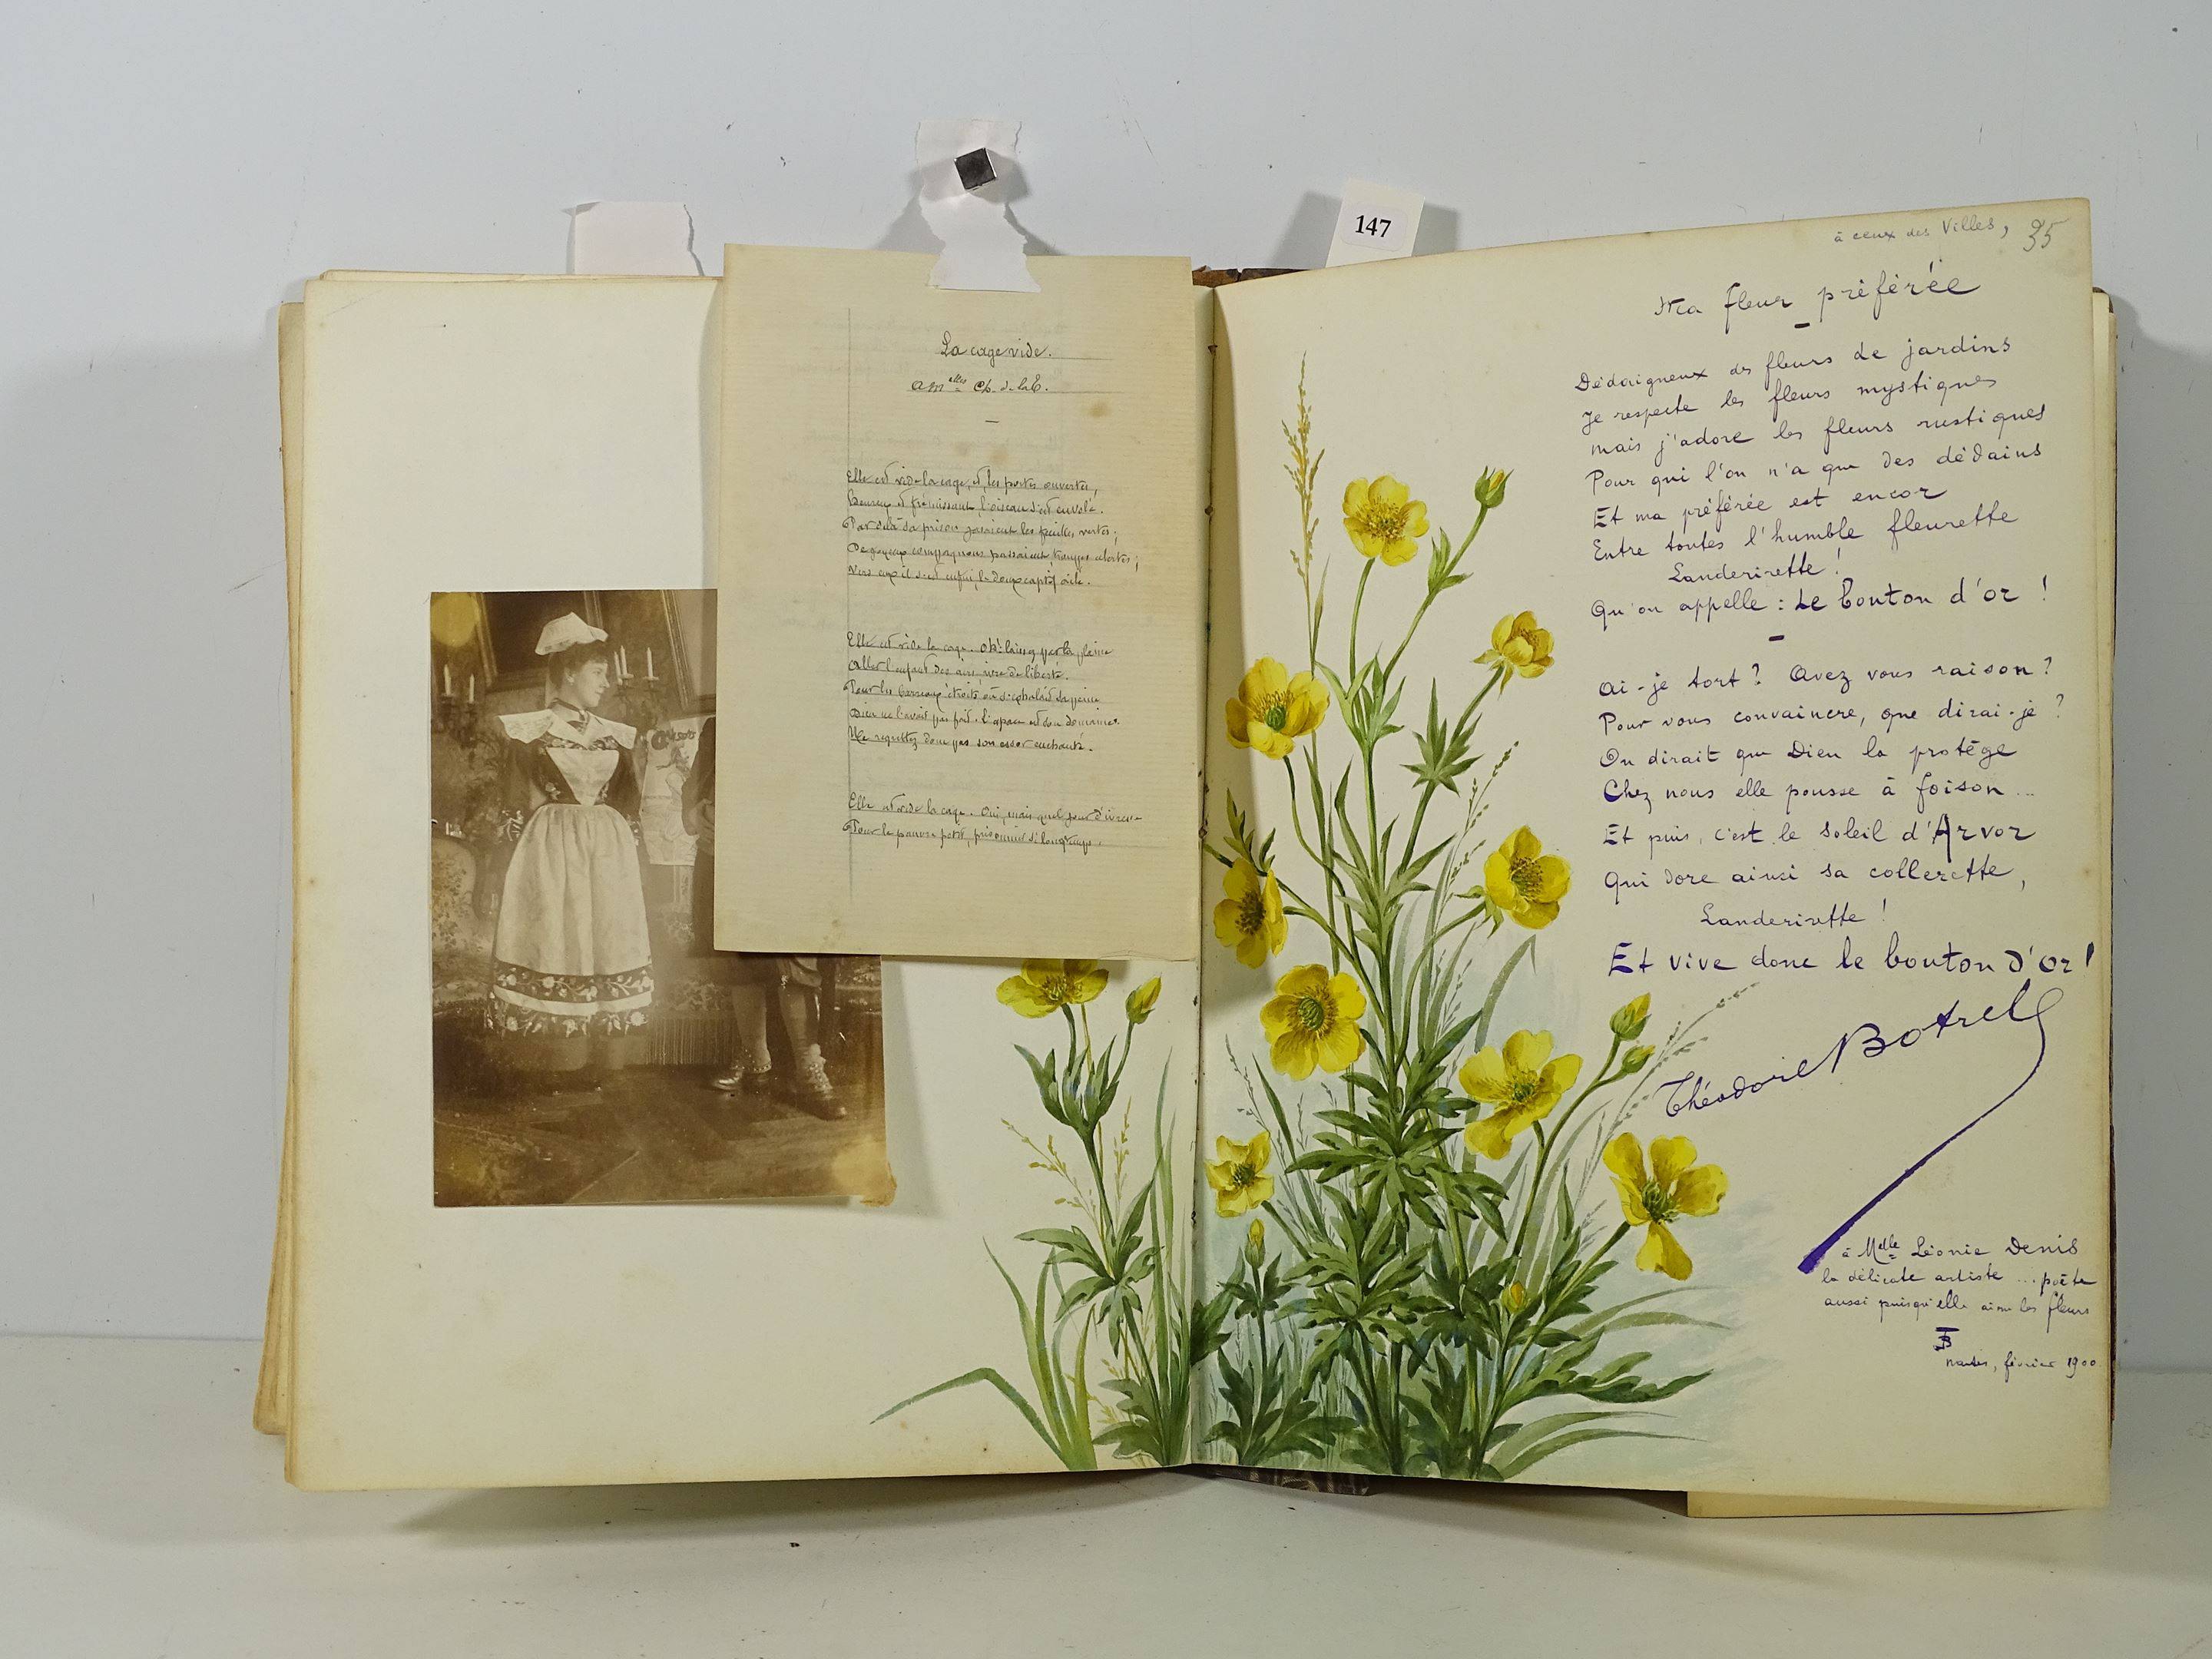 147
La cage vide.
a Melles Ch. de la E.
Elle est vide la cage, et les portes ouvertes,
Heureux et frémissant, l'oiseau s'est envolé.
Par delà sa prison jasaient les feuilles vertes ;
De joyeux compagnons passaient, troupes alertes ;
Vers eux il s'est enfui, le doux captif ailé.
Elle est vide la cage. Oh! laissez par la plaine
Aller l'enfant des airs, ivre de liberté.
Pour les barreaux étroits où s'exhalait sa peine
Dieu ne l'avait pas fait. L'espace est son domaine.
Ne regrettez donc pas son essor enchanté.
Elle est vide la cage. Oui, mais quel jour d'ivresse
Pour le pauvre petit, prisonnier si longtemps.
à ceux des Villes, 35
Ma fleur préférée
Dédaigneux des fleurs de jardins
Je respecte les fleurs mystiques
mais j'adore les fleurs rustiques
Pour qui l'on n'a que des dédains
Et ma préférée est encor
Entre toutes l'humble fleurette
Landerirette !
Qu'on appelle : Le bouton d'or !
Ai-je tort ? Avez vous raison ?
Pour vous convaincre, que dirai-je ?
On dirait que Dieu la protège
Chez nous elle pousse à foison ...
Et puis, c'est le soleil d'Arvor
Qui dore ainsi sa collerette,
Landerirette !
Et vive donc le bouton d'or !
Théodore Botrel
à Melle Léonie Denis
la délicate artiste ... poète
aussi puisqu'elle aime les fleurs
TB
Nantes, février 1900